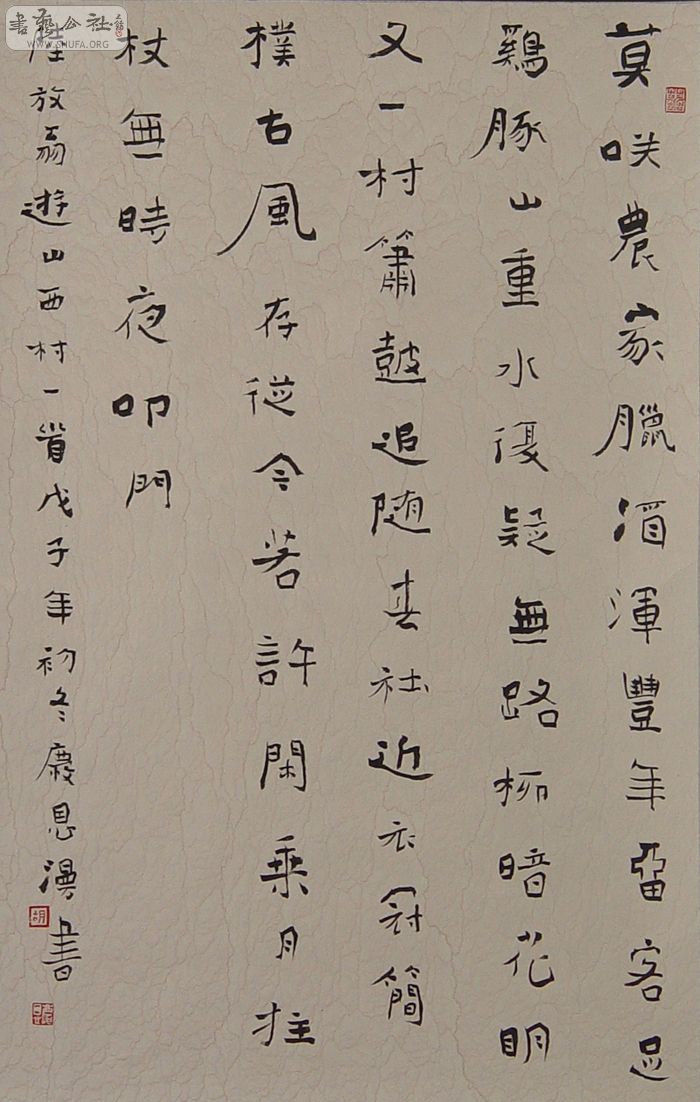 莫咲農家臘酒渾豐年畱客足
鷄豚山重水復疑無路柳暗花明
又一村簫鼓追随春社近衣冠簡
樸古風存從今若許閑乘月拄
杖無時夜叩門
陸放翁遊山西村一首戊子年初冬慶恩漫書
胡
書藝公社
WWW.SHUFA.ORG